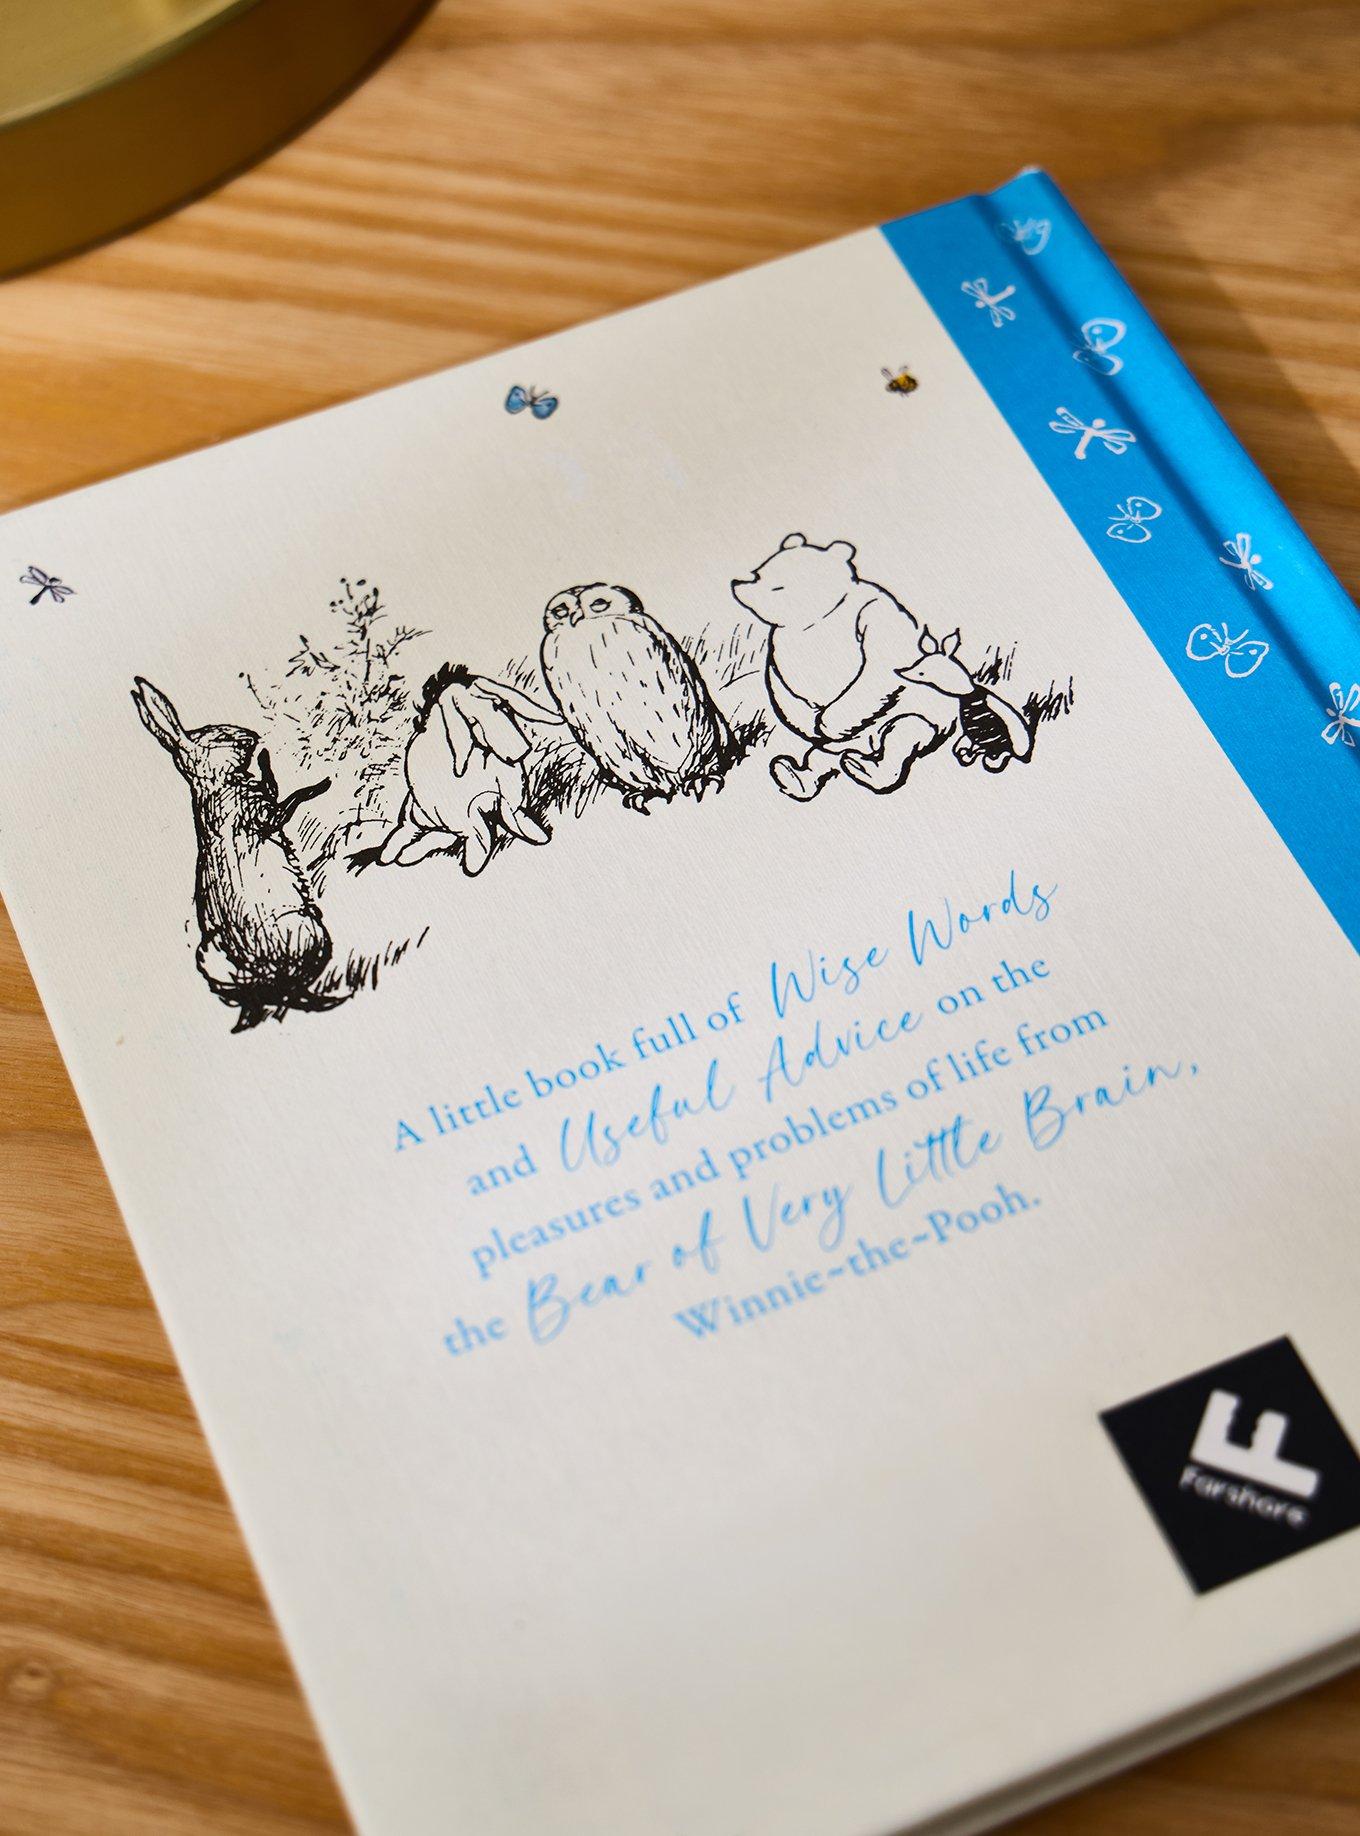 A little book full of Wise Words
and Useful Advice on the
pleasures and problems of life from
the Bear of Very Little Brain,
Winnie~the~Pooh.
F
Farshore